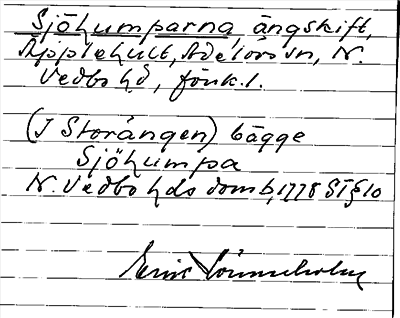 Sjöhumparna, ängskift,
Äpplehult, Adelövs sn, N.
Vedbo hd, Jönk.l.
(I Storängen) bägge
Sjöhumpa
N. Vedbo hds domb, 1778 ST § 10